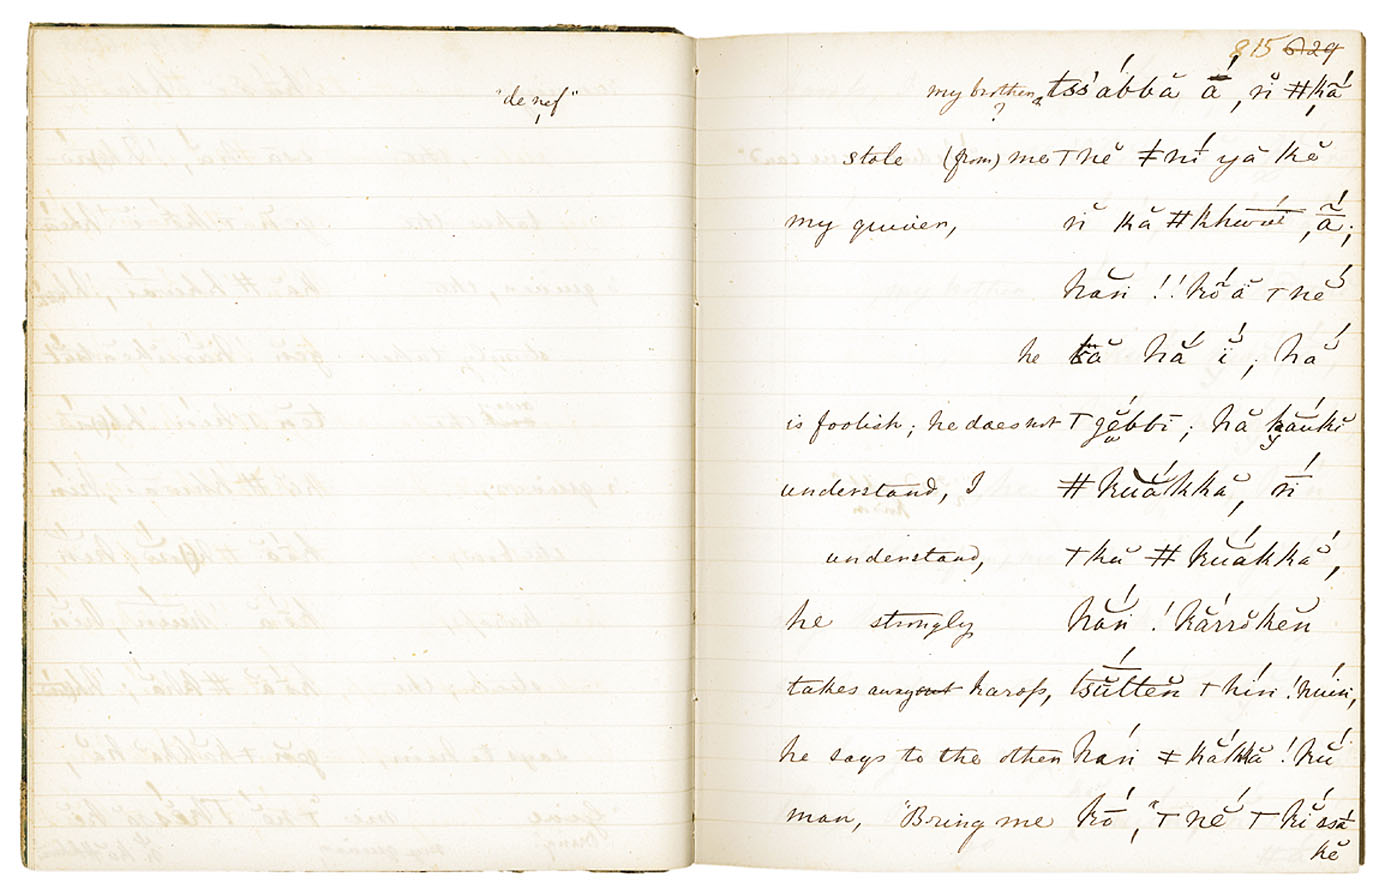 "de nef"
815 629
my brother, ? tss'ábbă ā́, n̆ ǂká̃
stole (from) me ⊤nĕ ǂní yā kĕ
my quiver, n̆ kă ǂkhwaí, ã́;
hăn !!kõ'ä ⊤nĕ́
he kă hắ ĭ́, hắ
is foolish; he does not ⊤gĕ́bbī; hă káukĭ
understand, I ǂkuákkă, ń
understand, ⊤ku ǂkuákkắ,
he strongly hắn !kắrrŏkĕn
takes away out karosp, tsū́ttĕn ⊤hín !kúin,
he says to the other hán ǂkákkă !kŭ́
man, "Bring me kṓ, "⊤nĕ́ ⊤kĭ́ssá
kĕ